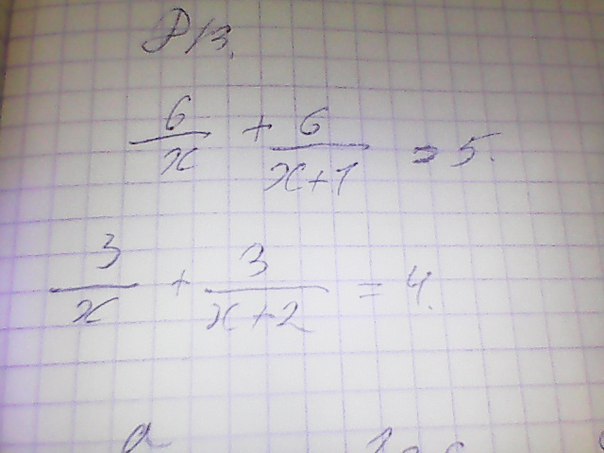 Д/з.
6/x + 6/(x+1) = 5.
3/x + 3/(x+2) = 4.
a